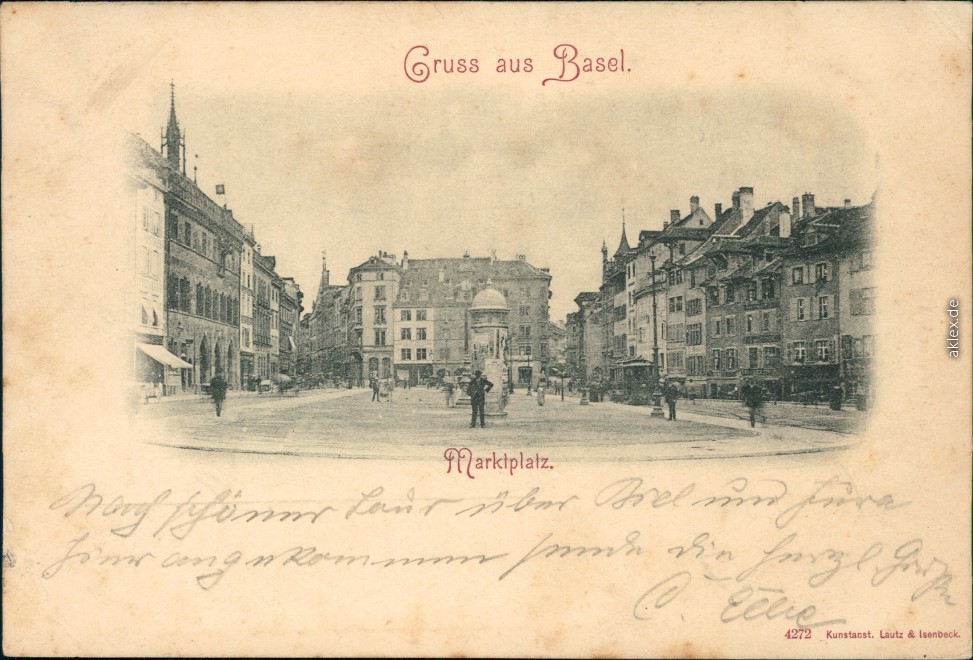 Gruss aus Basel.
Marktplatz.
Nach schöner Tour über Biel und Jura
hier angekommen sende Dir herzl. Grüße
C.
4272 Kunstanst. Lautz & Isenbeck.
aklex.de